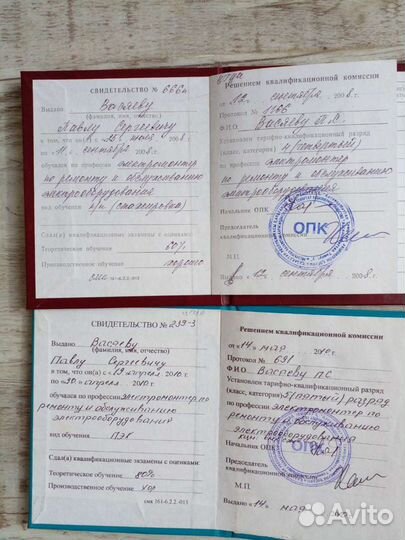 СВИДЕТЕЛЬСТВО № 666а
Выдано Васяеву
(фамилия, имя, отчество)
Павлу Сергеевичу
в том, что он(а) с 29 мая 2008 г.
по 11 сентября 2008 г.
обучался по профессии электромонтер
по ремонту и обслуживанию
электрооборудования
вид обучения
Сдал(а) квалификационные экзамены с оценками:
Теоретическое обучение 60%
Производственное обучение хорошо
Решением квалификационной комиссии
от 12 сентября 2008 г.
Протокол № 1766
Ф.И.О. Васяеву П.С.
Установлен тарифно-квалификационный разряд
(класс, категория) 4 (четвертый)
по профессии электромонтер
по ремонту и обслуживанию
электрооборудования
Начальник ОПК
Председатель
квалификационной комиссии
ОПК
М.П.
12 сентября 2008 г.
СВИДЕТЕЛЬСТВО № 239-3
Выдано Васяеву
(фамилия, имя, отчество)
Павлу Сергеевичу
в том, что он(а) с 19 апреля 2010 г.
по «30» апреля 2010 г.
обучался по профессии электромонтер по
ремонту и обслуживанию
электрооборудования
вид обучения ПЭК
Сдал(а) квалификационные экзамены с оценками:
Теоретическое обучение 80%
Производственное обучение хор
Решением квалификационной комиссии
от «14» мая 2010 г.
Протокол № 691
Ф И О Васяеву П С
Установлен тарифно-квалификационный разряд
(класс, категория) 5 (пятый) разряд
по профессии электромонтер по
ремонту и обслуживанию
электрооборудования
Начальник ОПК
Председатель
квалификационной комиссии
ОПК
М.П.
Выдано «14» мая
Avito